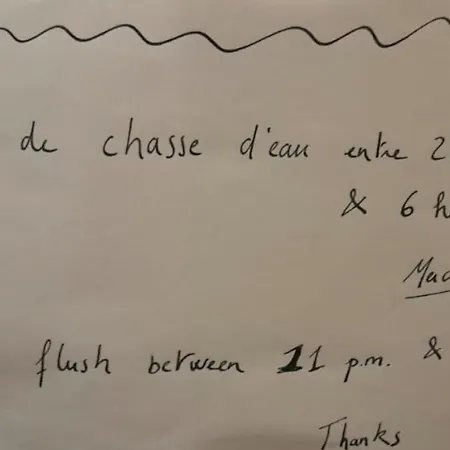 de chasse d'eau entre 2
& 6 h
flush between 11 p.m. &
Thanks